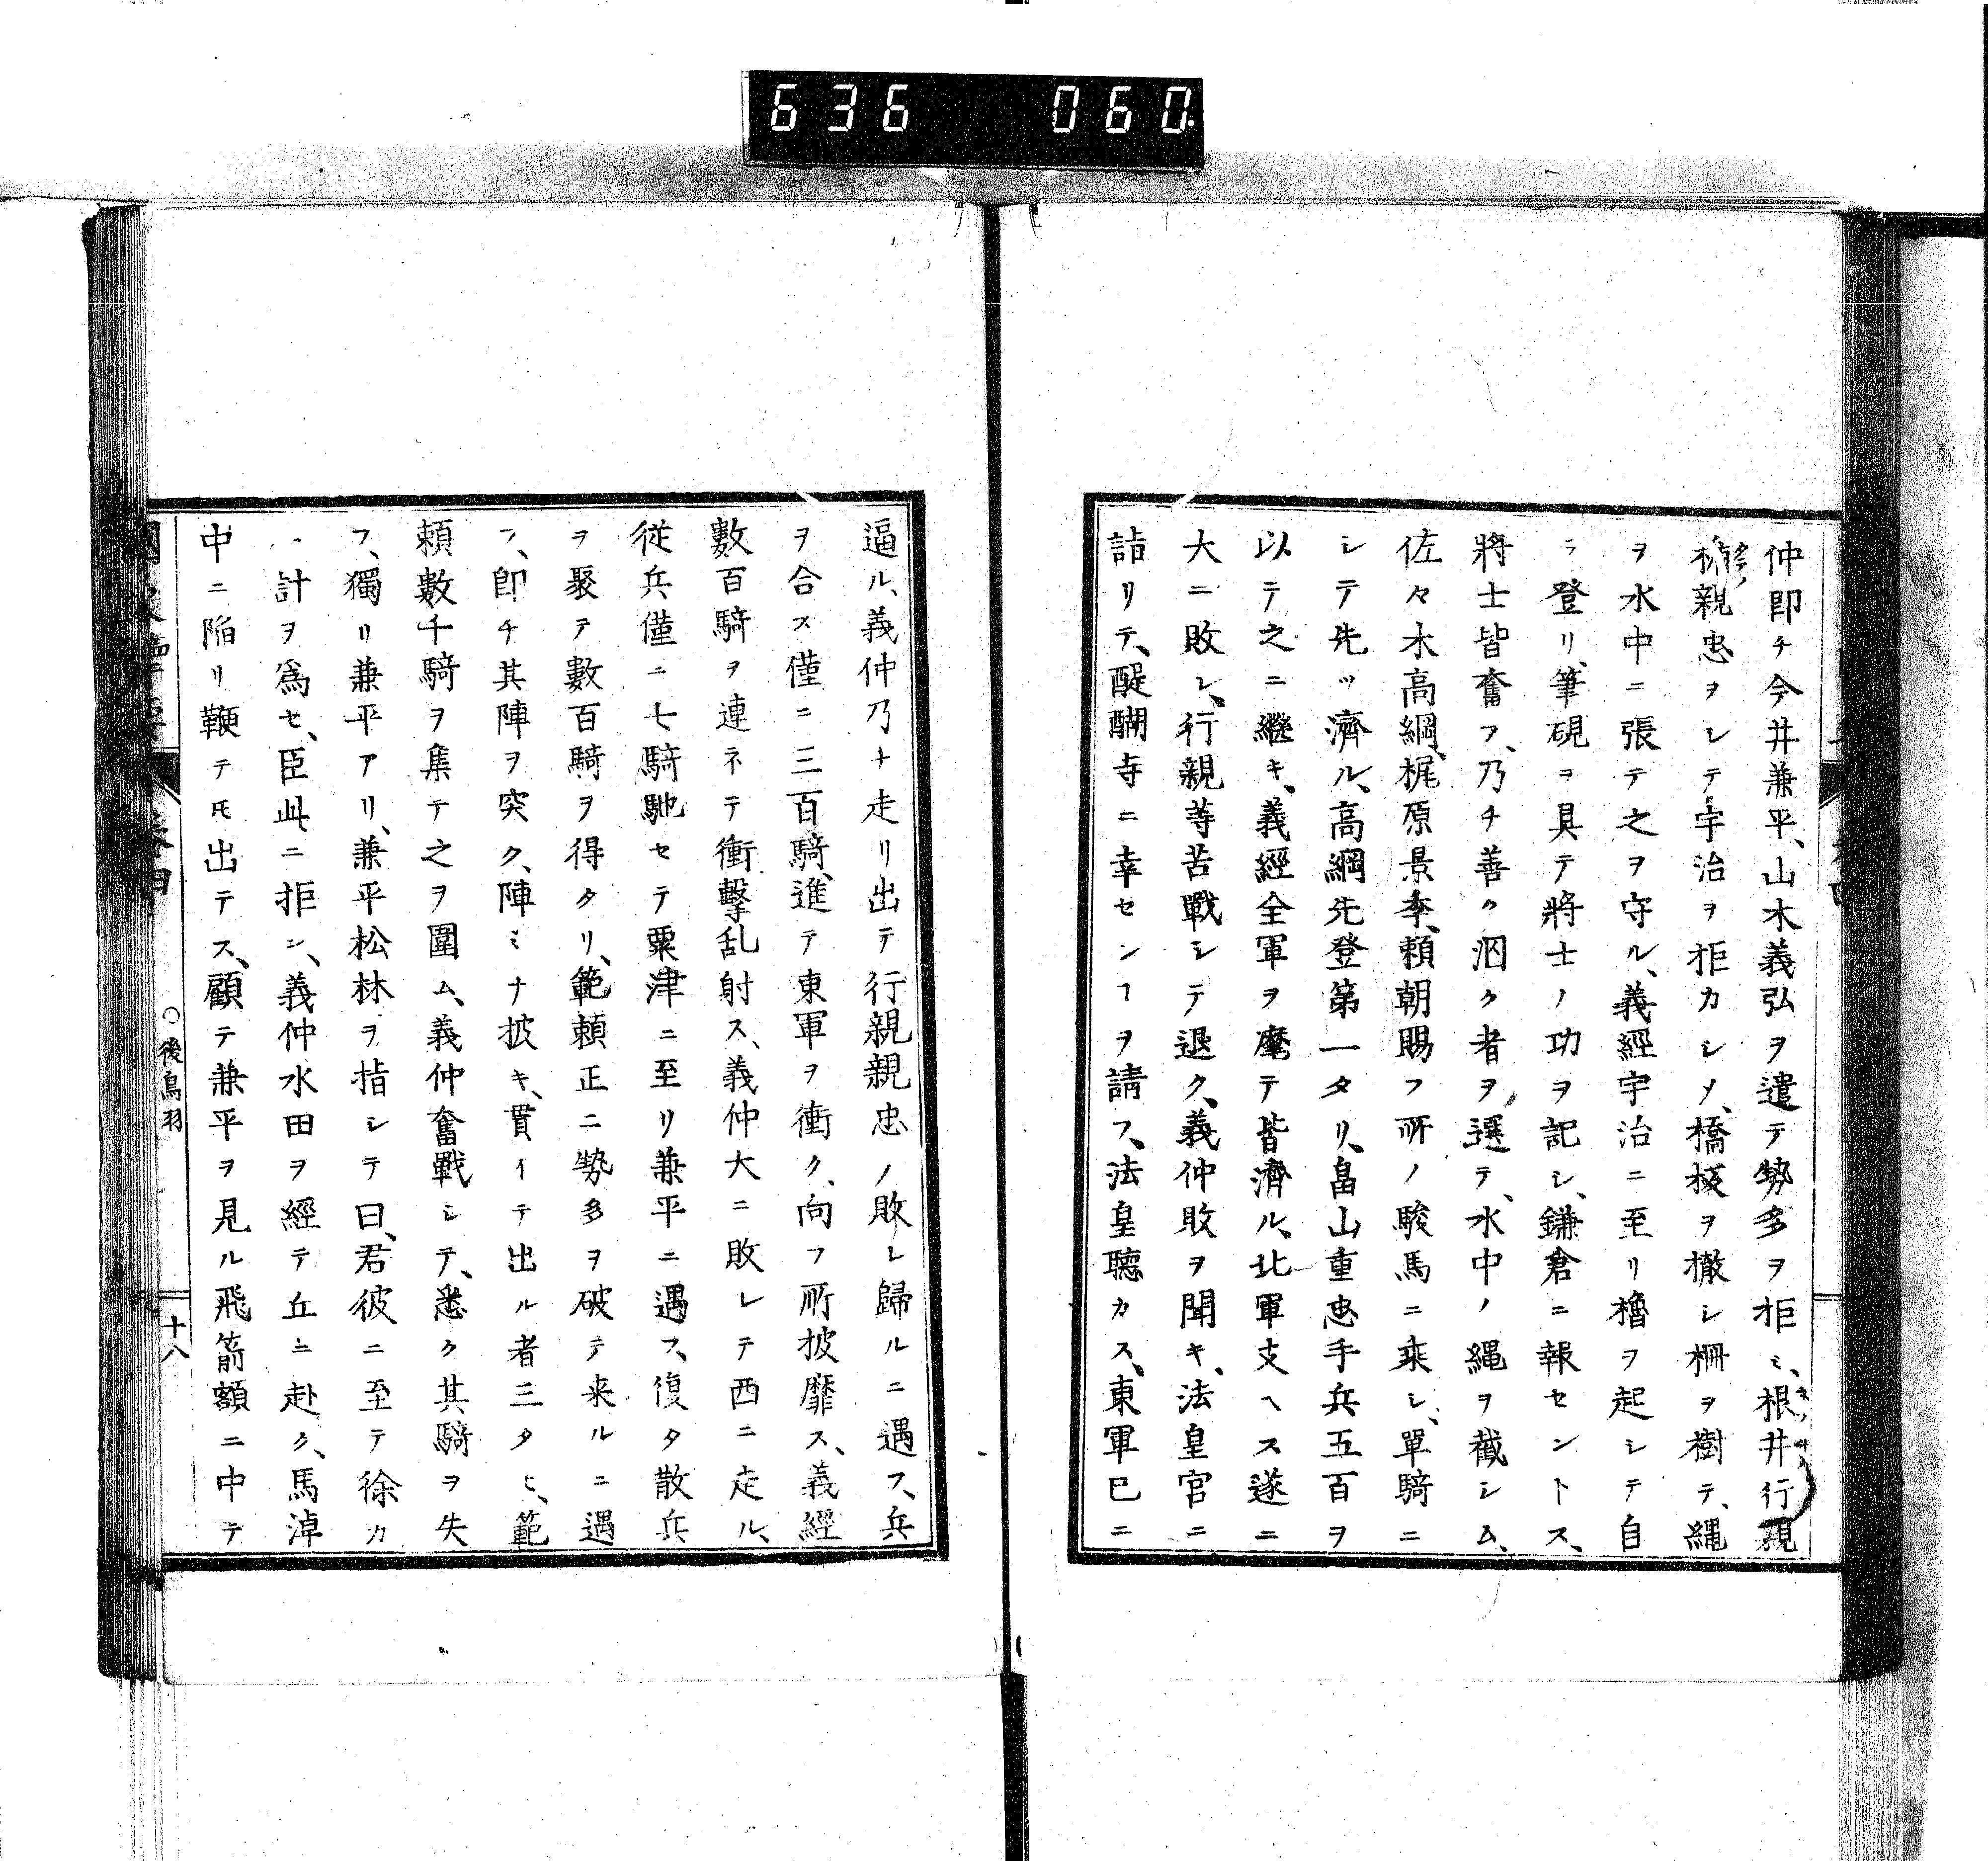 636 060
仲即チ今井兼平、山木義弘ヲ遣テ勢多ヲ拒ミ、根井行親
楯親忠ヲシテ宇治ヲ拒カシメ、橋板ヲ撤シ柵ヲ樹テ、縄
ヲ水中ニ張テ之ヲ守ル、義經宇治ニ至リ櫓ヲ起シテ自
ラ登リ、筆硯ヲ具テ將士ノ功ヲ記シ、鎌倉ニ報セントス、
將士皆奮フ、乃チ善ク泅ク者ヲ選テ、水中ノ縄ヲ截シム、
佐々木高綱、梶原景季、頼朝賜フ所ノ駿馬ニ乘シ、單騎ニ
シテ先ッ濟ル、高綱先登第一タリ、畠山重忠手兵五百ヲ
以テ之ニ繼キ、義經全軍ヲ麾テ皆濟ル、北軍支ヘス遂ニ
大ニ敗レ、行親等苦戰シテ退ク、義仲敗ヲ聞キ、法皇宮ニ
詣リテ、醍醐寺ニ幸センヿヲ請フ、法皇聽カス、東軍已ニ
逼ル、義仲乃ナ走リ出テ行親親忠ノ敗レ歸ルニ遇フ、兵
ヲ合ス僅ニ三百騎、進テ東軍ヲ衝ク、向フ所披靡ス、義經
數百騎ヲ連ネテ衝擊乱射ス、義仲大ニ敗レテ西ニ走ル、
従兵僅ニ七騎馳セテ粟津ニ至リ兼平ニ遇フ、復タ散兵
ヲ聚テ數百騎ヲ得タリ、範頼正ニ勢多ヲ破テ来ルニ遇
フ、即チ其陣ヲ突ク、陣ミナ披キ、貫イテ出ル者三タヒ、範
頼數千騎ヲ集テ之ヲ圍ム、義仲奮戰シテ、悉ク其騎ヲ失
フ、獨リ兼平アリ、兼平松林ヲ指シテ曰、君彼ニ至テ徐カ
ニ計ヲ爲セ、臣此ニ拒ン、義仲水田ヲ經テ丘ニ赴ク、馬淖
中ニ陷リ鞭テ𪜈出テス、顧テ兼平ヲ見ル飛箭額ニ中テ
○後鳥羽
十八